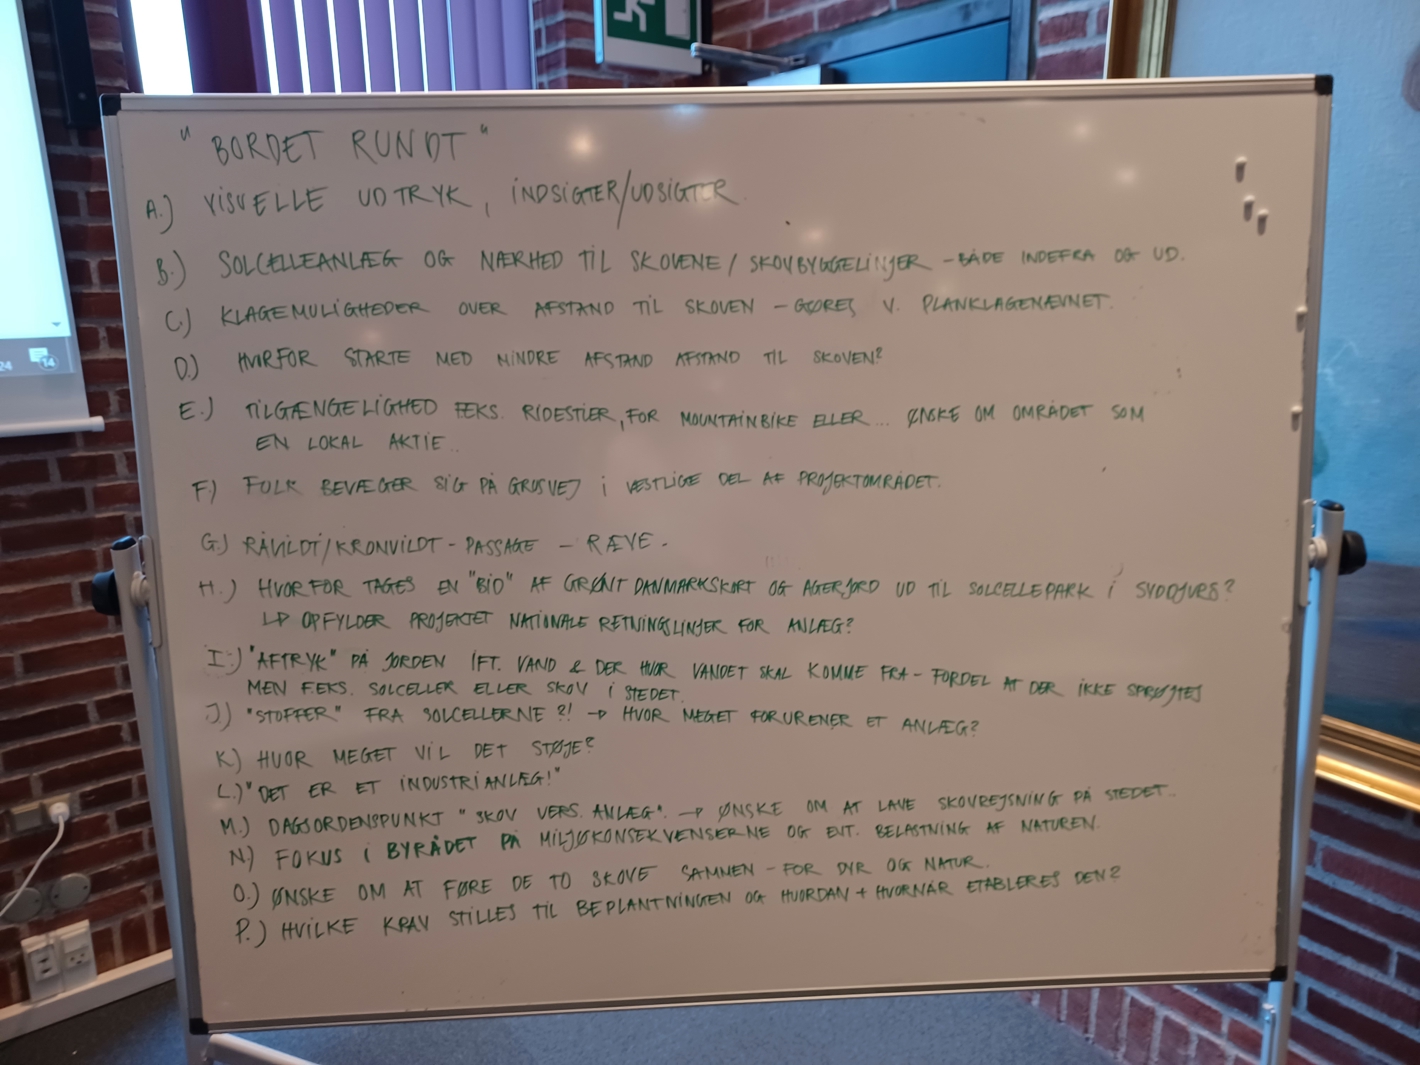 "BORDET RUNDT"
A.) VISUELLE UDTRYK, INDSIGTER/UDSIGTER.
B.) SOLCELLEANLÆG OG NÆRHED TIL SKOVENE/SKOVBYGGELINJER - BÅDE INDEFRA OG UD.
C.) KLAGEMULIGHEDER OVER AFSTAND TIL SKOVEN - GØRES V. PLANKLAGENÆVNET.
D.) HVORFOR STARTE MED MINDRE AFSTAND AFSTAND TIL SKOVEN?
E.) TILGÆNGELIGHED F.EKS. RIDESTIER, FOR MOUNTAINBIKE ELLER... ØNSKE OM OMRÅDET SOM
EN LOKAL AKTIE..
F) FOLK BEVÆGER SIG PÅ GRUSVEJ I VESTLIGE DEL AF PROJEKTOMRÅDET.
G.) RÅVILDT/KRONVILDT - PASSAGE - RÆVE.
H.) HVORFOR TAGES EN "BID" AF GRØNT DANMARKSKORT OG AGERJORD UD TIL SOLCELLEPARK I SYDDJURS?
↳ OPFYLDER PROJEKTET NATIONALE RETNINGSLINJER FOR ANLÆG?
I.) "AFTRYK" PÅ JORDEN IFT. VAND & DER HVOR VANDET SKAL KOMME FRA - FORDEL AT DER IKKE SPRØJTES
MEN F.EKS. SOLCELLER ELLER SKOV I STEDET.
J) "STOFFER" FRA SOLCELLERNE?! → HVOR MEGET FORURENER ET ANLÆG?
K) HVOR MEGET VIL DET STØJE?
L.) "DET ER ET INDUSTRIANLÆG!"
M.) DAGSORDENSPUNKT "SKOV VERS. ANLÆG". → ØNSKE OM AT LAVE SKOVREJSNING PÅ STEDET..
N) FOKUS I BYRÅDET PÅ MILJØKONSEKVENSERNE OG ENT. BELASTNING AF NATUREN.
O.) ØNSKE OM AT FØRE DE TO SKOVE SAMMEN - FOR DYR OG NATUR.
P.) HVILKE KRAV STILLES TIL BEPLANTNINGEN OG HVORDAN + HVORNÅR ETABLERES DEN?
24
14